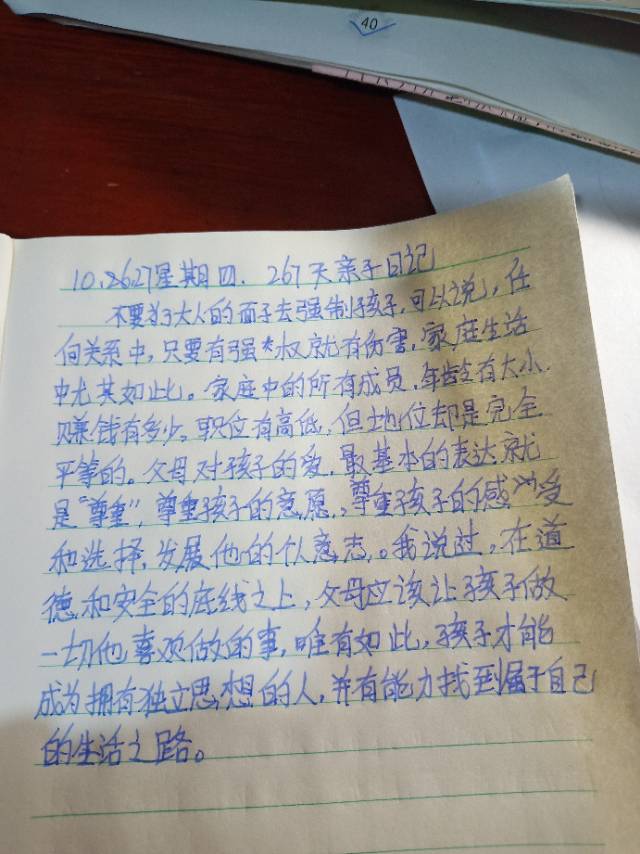 40
10.2627星期四. 267天亲子日记
不要为了大人的面子去强制孩子,可以说,任
何关系中,只要有强权就有伤害,家庭生活
中尤其如此。家庭中的所有成员,年龄有大小,
赚钱有多少,职位有高低,但地位却是完全
平等的。父母对孩子的爱,最基本的表达就
是“尊重”,尊重孩子的意愿,尊重孩子的感受
和选择,发展他的个人意志。我说过,在道
德和安全的底线之上,父母应该让孩子做
一切他喜欢做的事,唯有如此,孩子才能
成为拥有独立思想的人,并有能力找到属于自己
的生活之路。